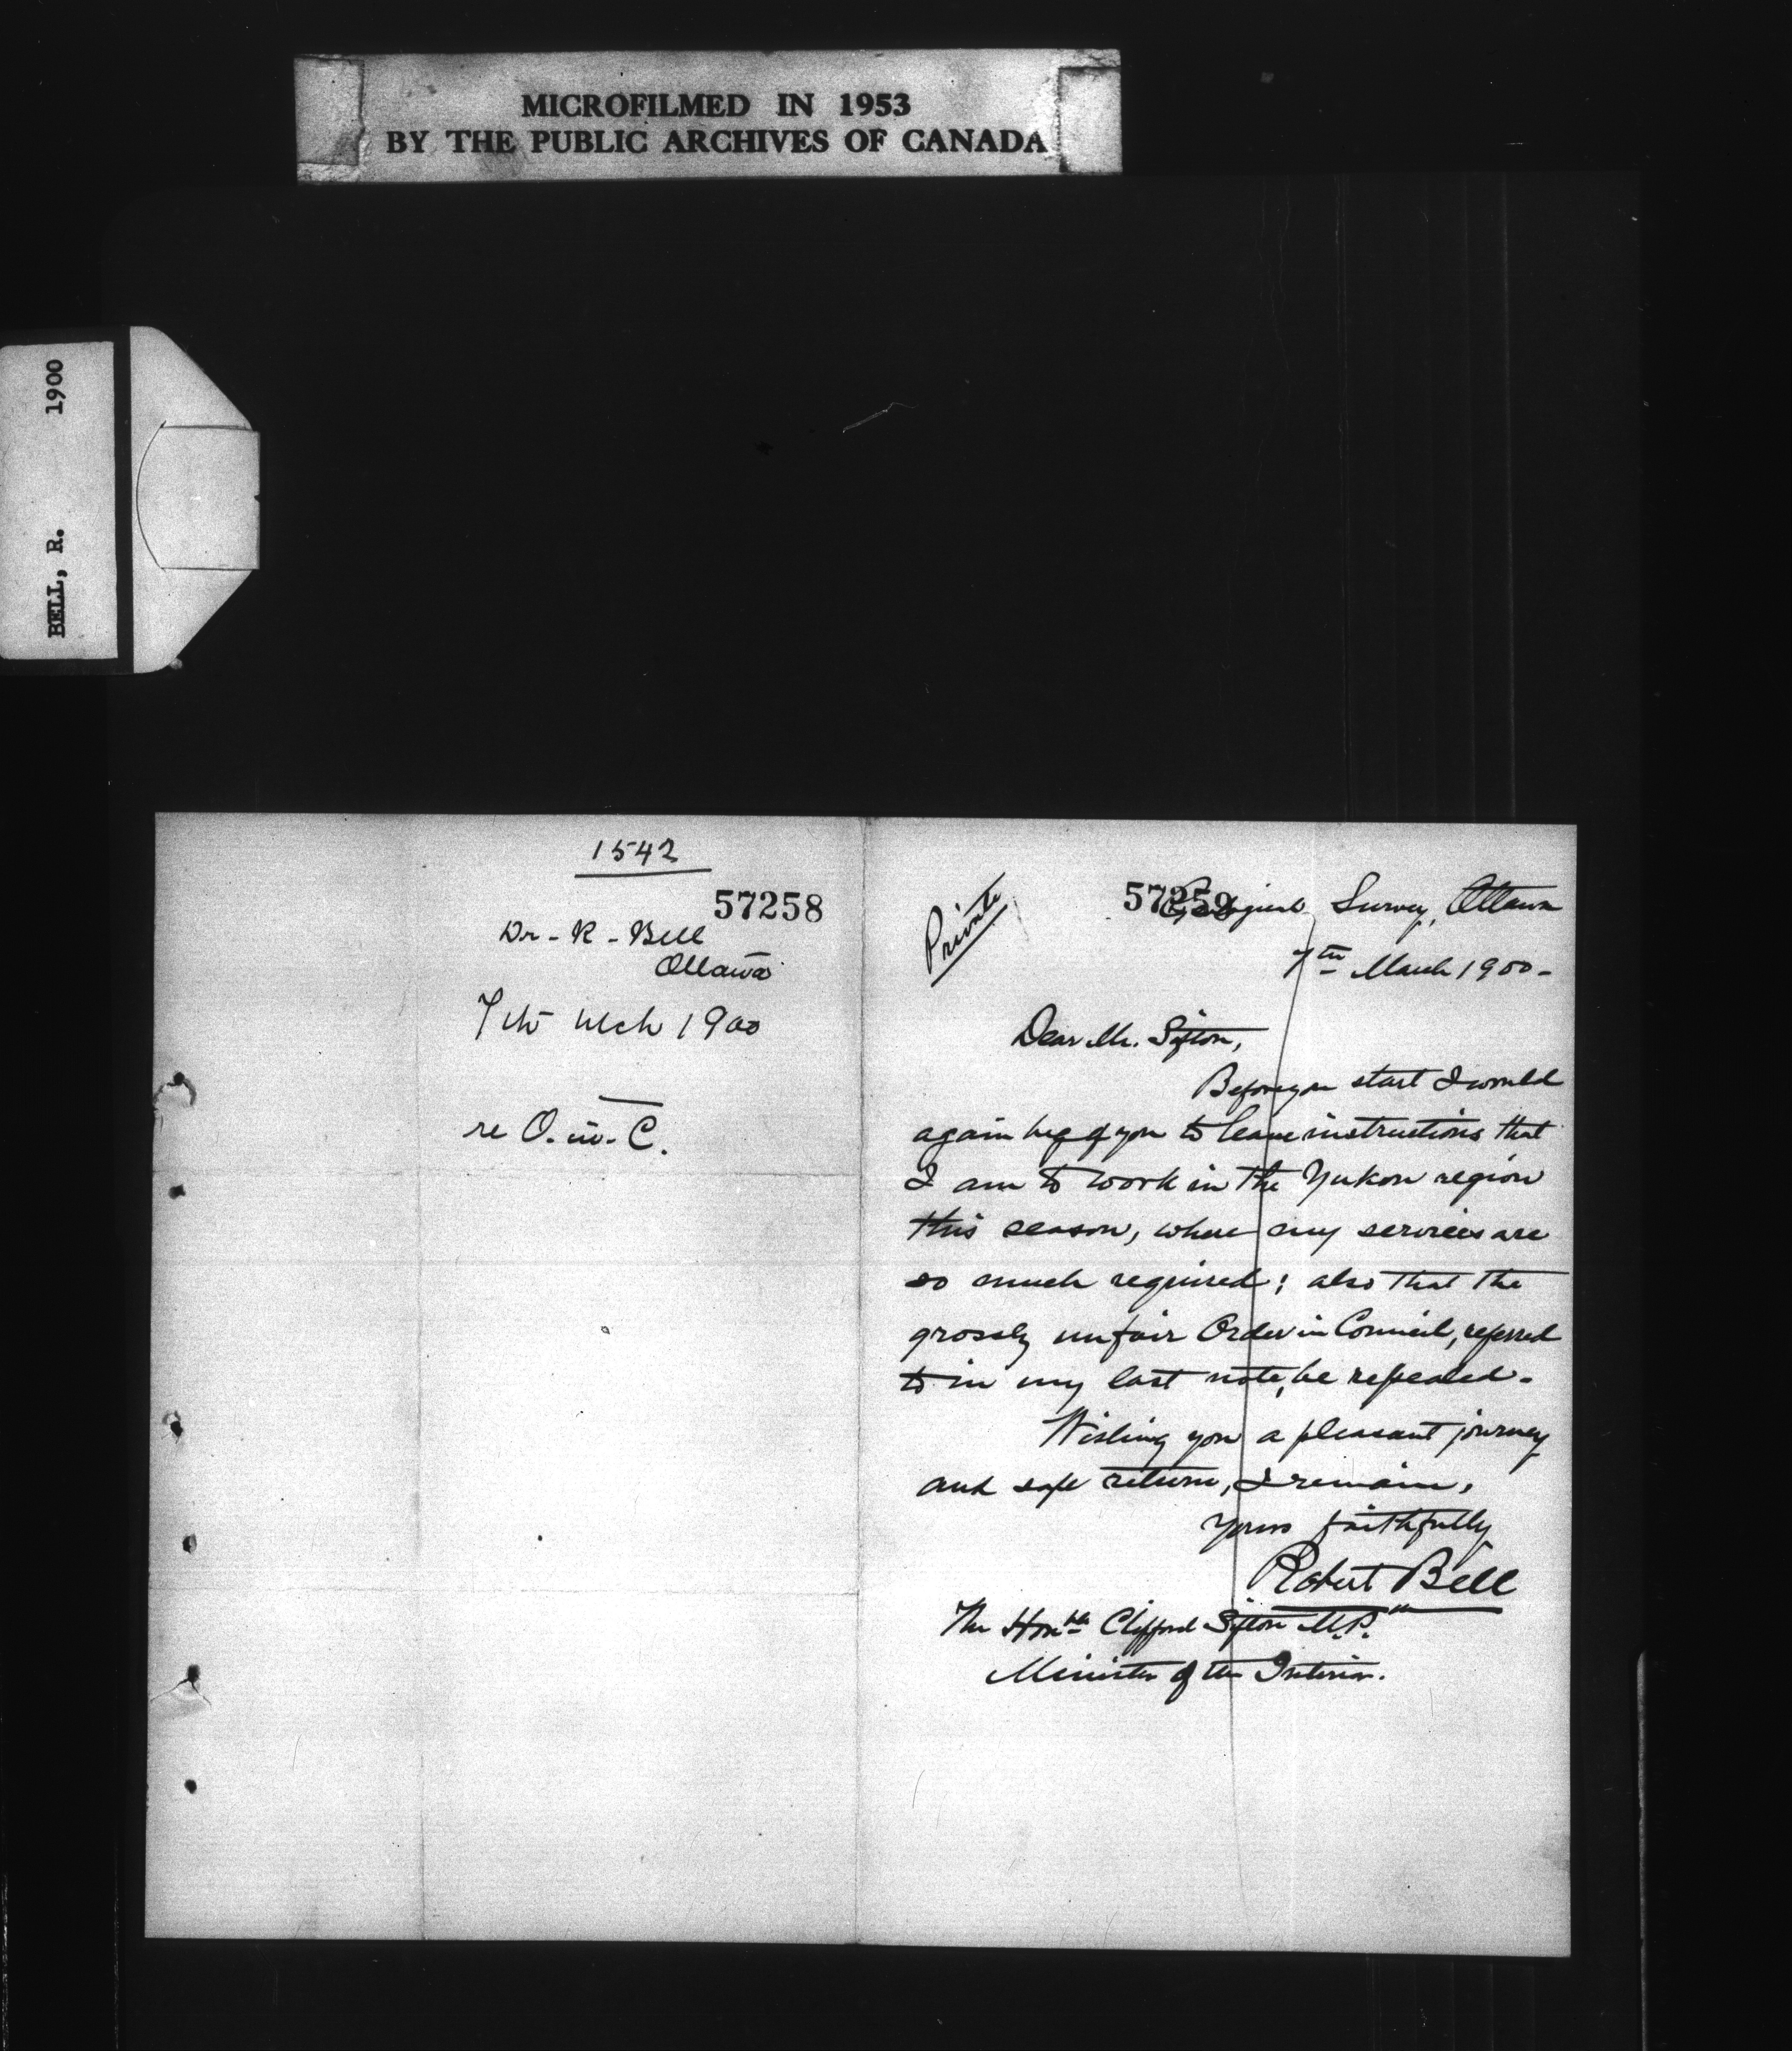 MICROFILMED IN 1953
BY THE PUBLIC ARCHIVES OF CANADA
BELL, R. 1900
1542
57258
Dr - R - Bell
Ottawa
7th Mch 1900
re O. in. C.
Private
57259
Geological Survey, Ottawa
7th March 1900 -
Dear Mr. Sifton,
Before you start I would
again beg of you to leave instructions that
I am to work in the Yukon region
this season, where my services are
so much required; also that the
grossly unfair Order in Council, referred
to in my last note, be repealed.
Wishing you a pleasant journey
and safe return, I remain,
Yours faithfully
Robert Bell
The Honble Clifford Sifton M.P.
Minister of the Interior.